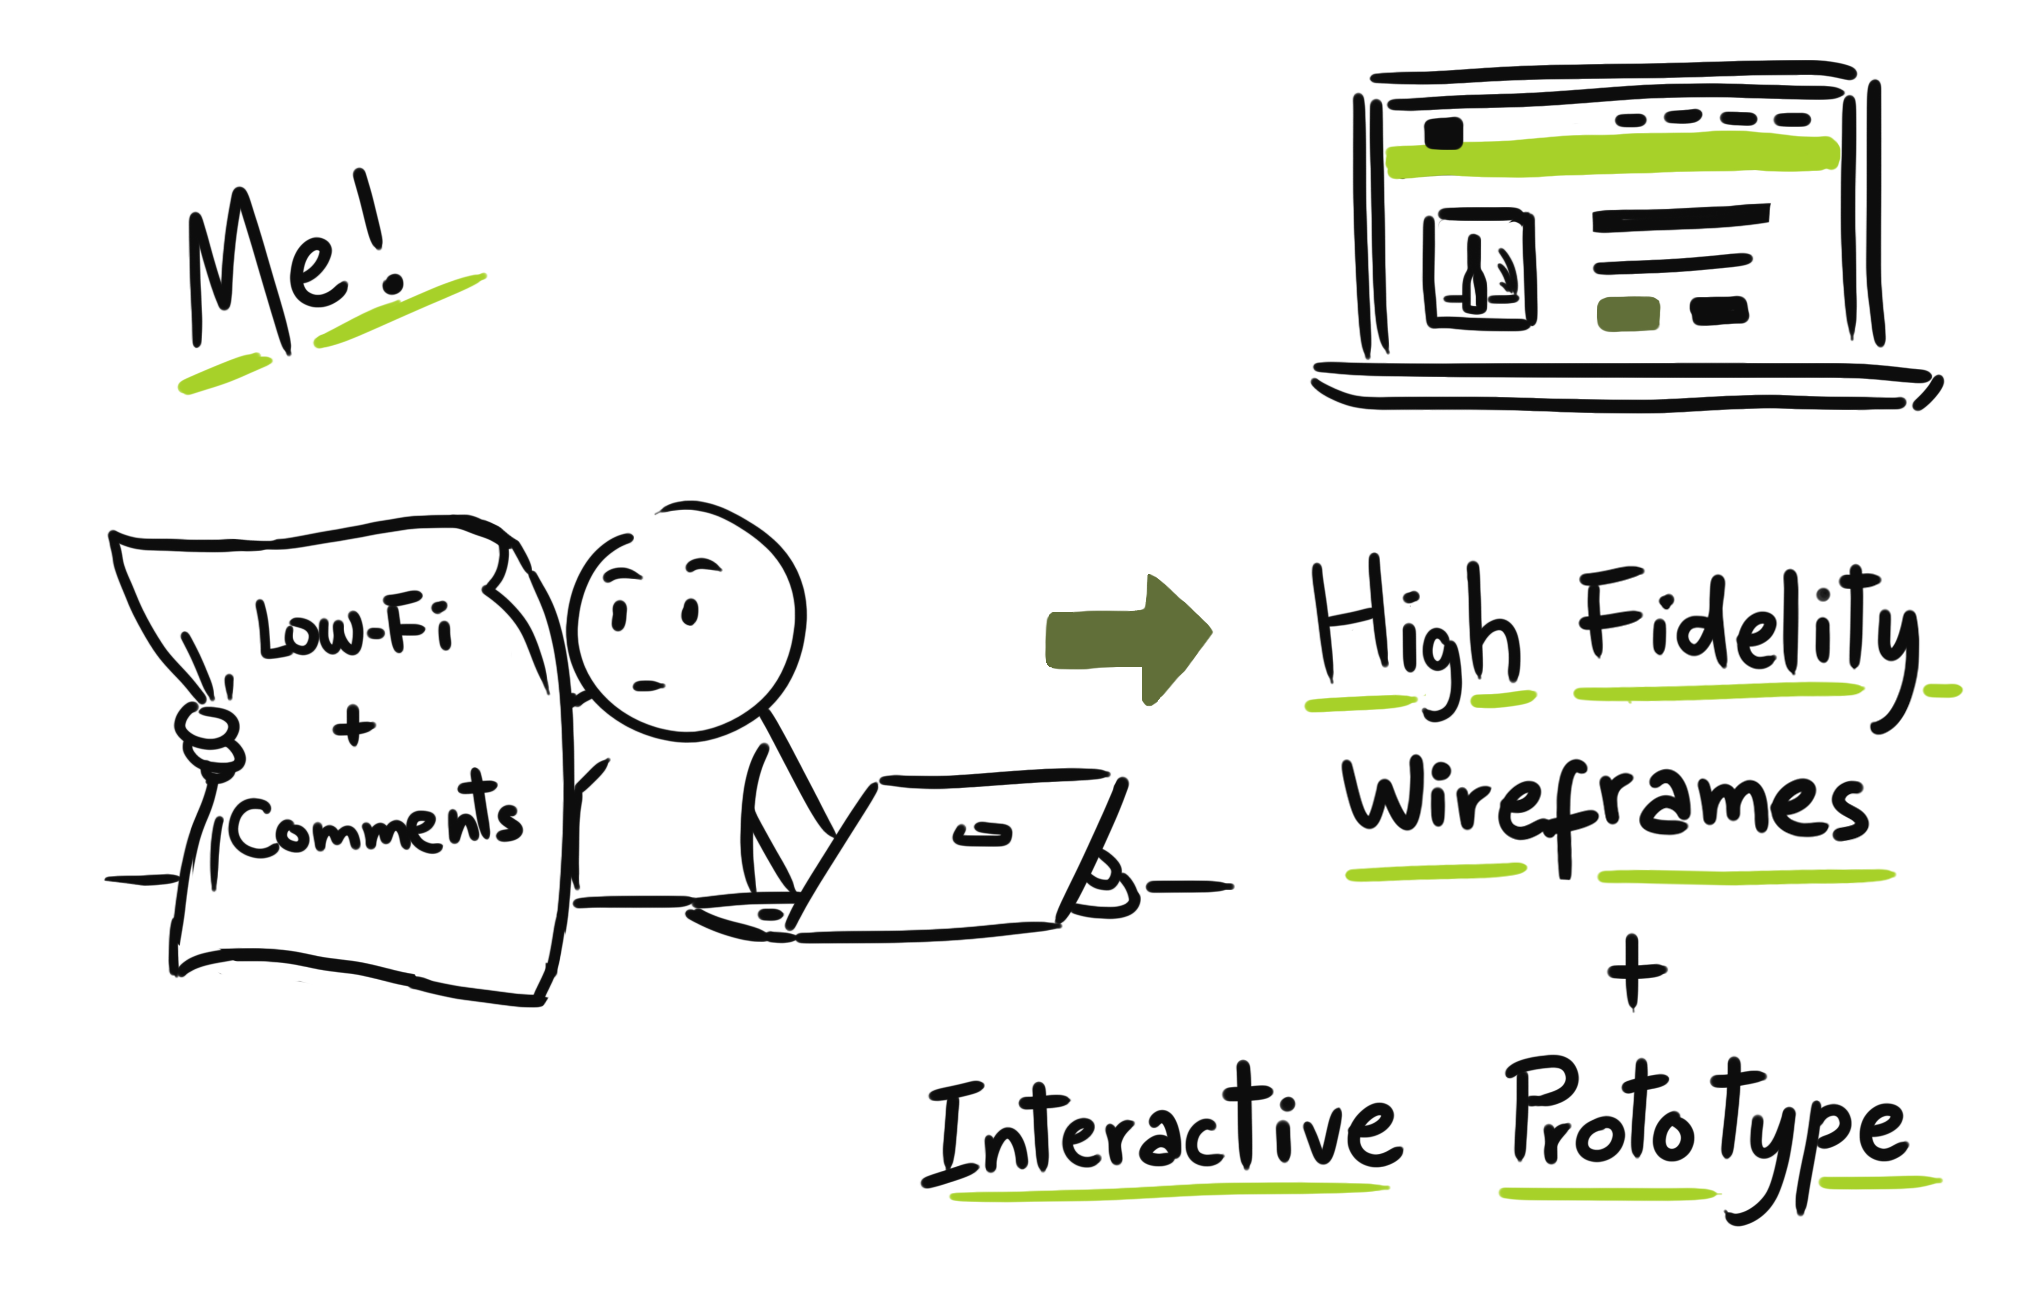 Me!
Low-Fi
+
Comments
High Fidelity
Wireframes
+
Interactive Prototype